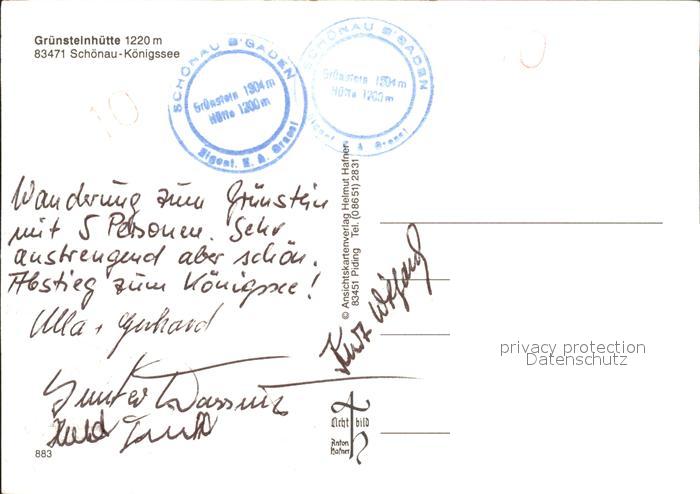 Grünsteinhütte 1220 m
83471 Schönau-Königssee
SCHÖNAU B'GADEN
Grünstein 1304 m
Hütte 1200 m
Eigent. E. A.
SCHÖNAU B'GADEN
Grünstein 1304 m
Hütte 1200 m
10
Wanderung zum Grünstein
mit 5 Personen. Sehr
anstrengend aber schön.
Abstieg zum Königssee!
Ulla + Gerhard
Günter
883
© Ansichtskartenverlag Helmut Hafner
83451 Piding Tel. (08651) 2831
Kurt Wolfgang
Licht bild
Anton
Hafner
privacy protection
Datenschutz